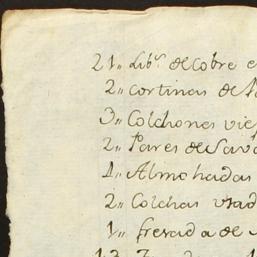 21,, Lib.s de Cobre e
2,, cortinas de
3,, Colchones vie
2,, Pares de Sava
1,, Almohadas
2,, Colchas usad
1,, fresada de